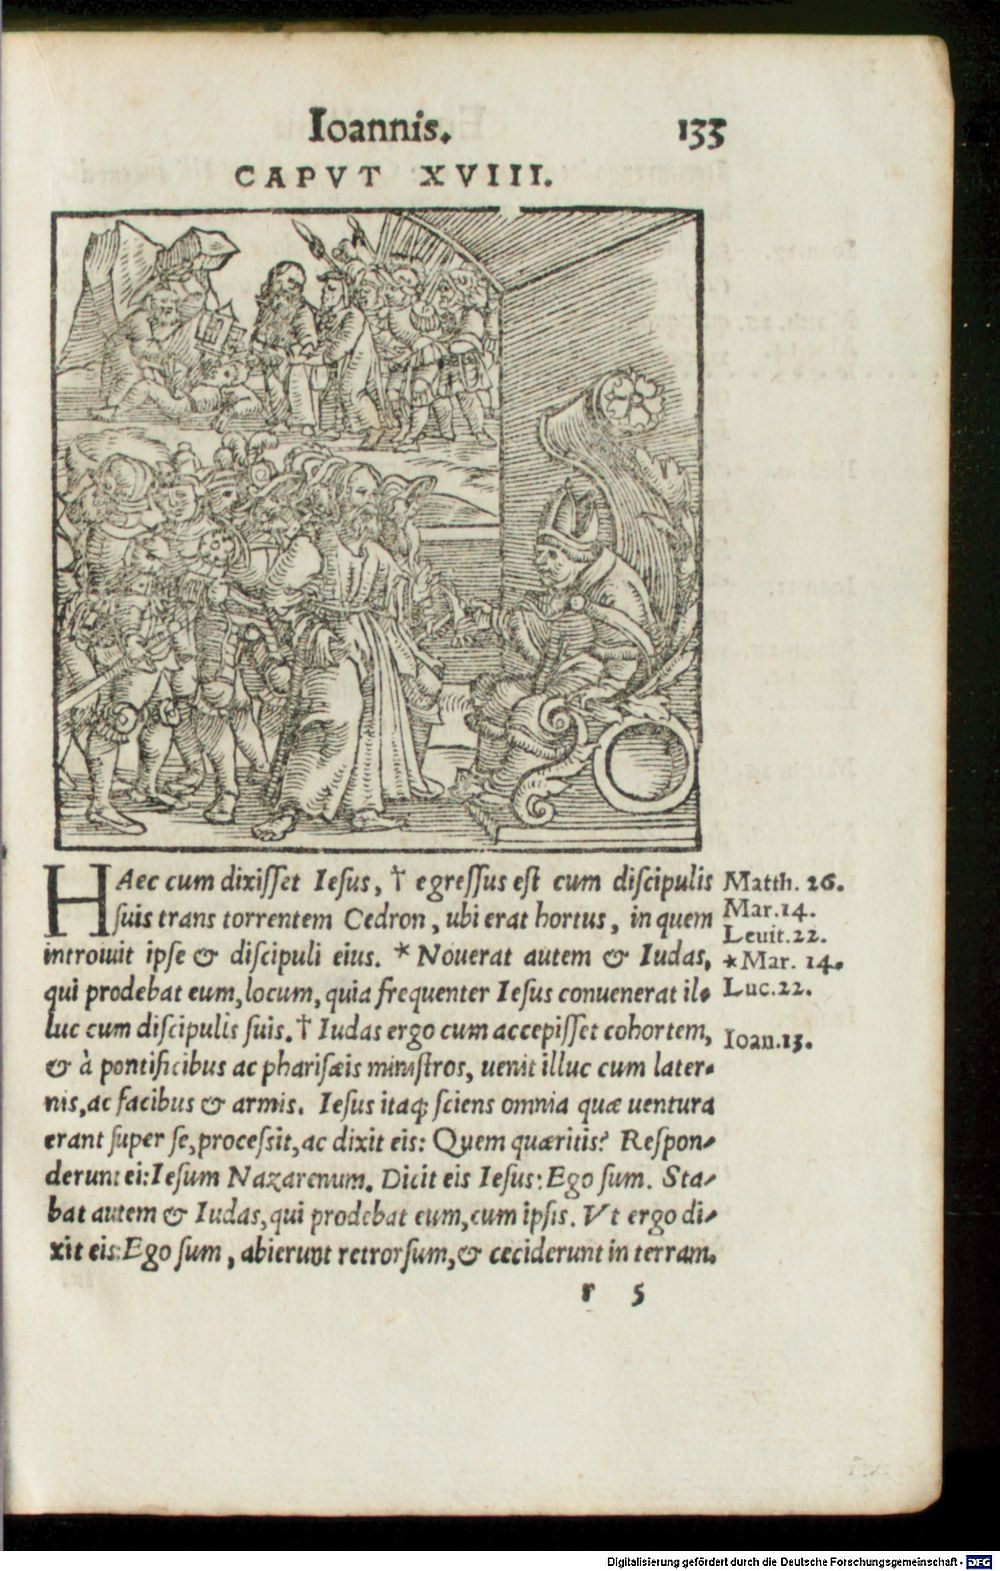 Ioannis. 133
CAPVT XVIII.
HAec cum dixisset Iesus, † egressus est cum discipulis
suis trans torrentem Cedron, ubi erat hortus, in quem
introiuit ipse & discipuli eius. * Nouerat autem & Iudas,
qui prodebat eum, locum, quia frequenter Iesus conuenerat il-
luc cum discipulis suis. † Iudas ergo cum accepisset cohortem,
& à pontificibus ac pharisæis ministros, uenit illuc cum later-
nis, ac facibus & armis. Iesus itaq; sciens omnia quæ uentura
erant super se, processit, ac dixit eis: Quem quæritis? Respon-
derunt ei: Iesum Nazarenum. Dicit eis Iesus: Ego sum. Sta-
bat autem & Iudas, qui prodebat eum, cum ipsis. Vt ergo di-
xit eis: Ego sum, abierunt retrorsum, & ceciderunt in terram.
Matth. 26.
Mar. 14.
Leuit. 22.
* Mar. 14.
Luc. 22.
Ioan. 13.
r 5
Digitalisierung gefördert durch die Deutsche Forschungsgemeinschaft - DFG